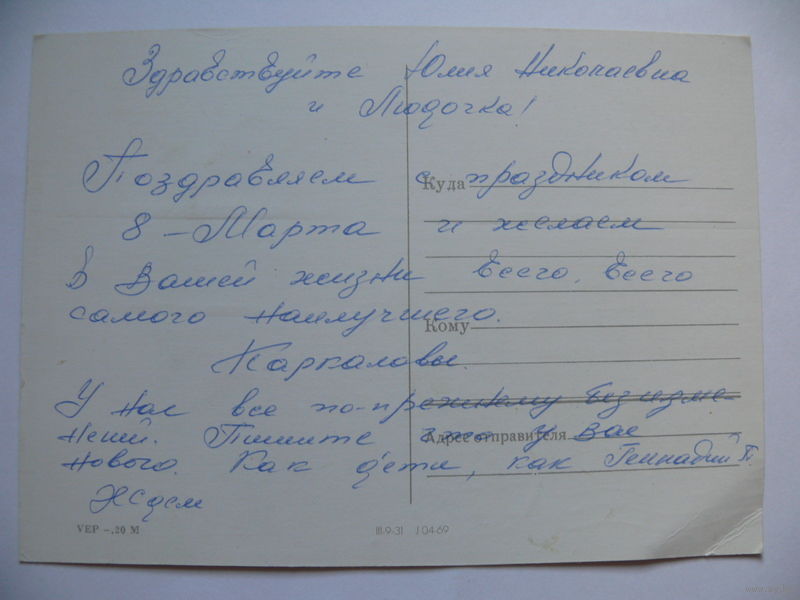 Здравствуйте Юлия Николаевна
и Людочка!
Поздравляем с праздником
Куда
8 – Марта и желаем
в Вашей жизни всего, всего
самого наилучшего.
Кому
Каркаловы.
У нас все по-прежнему без изме-
нений. Пишите что у вас
Адрес отправителя
нового. Как дети, как Геннадий
Ждем
VEP –,20 M
III-9-31 J 04.69